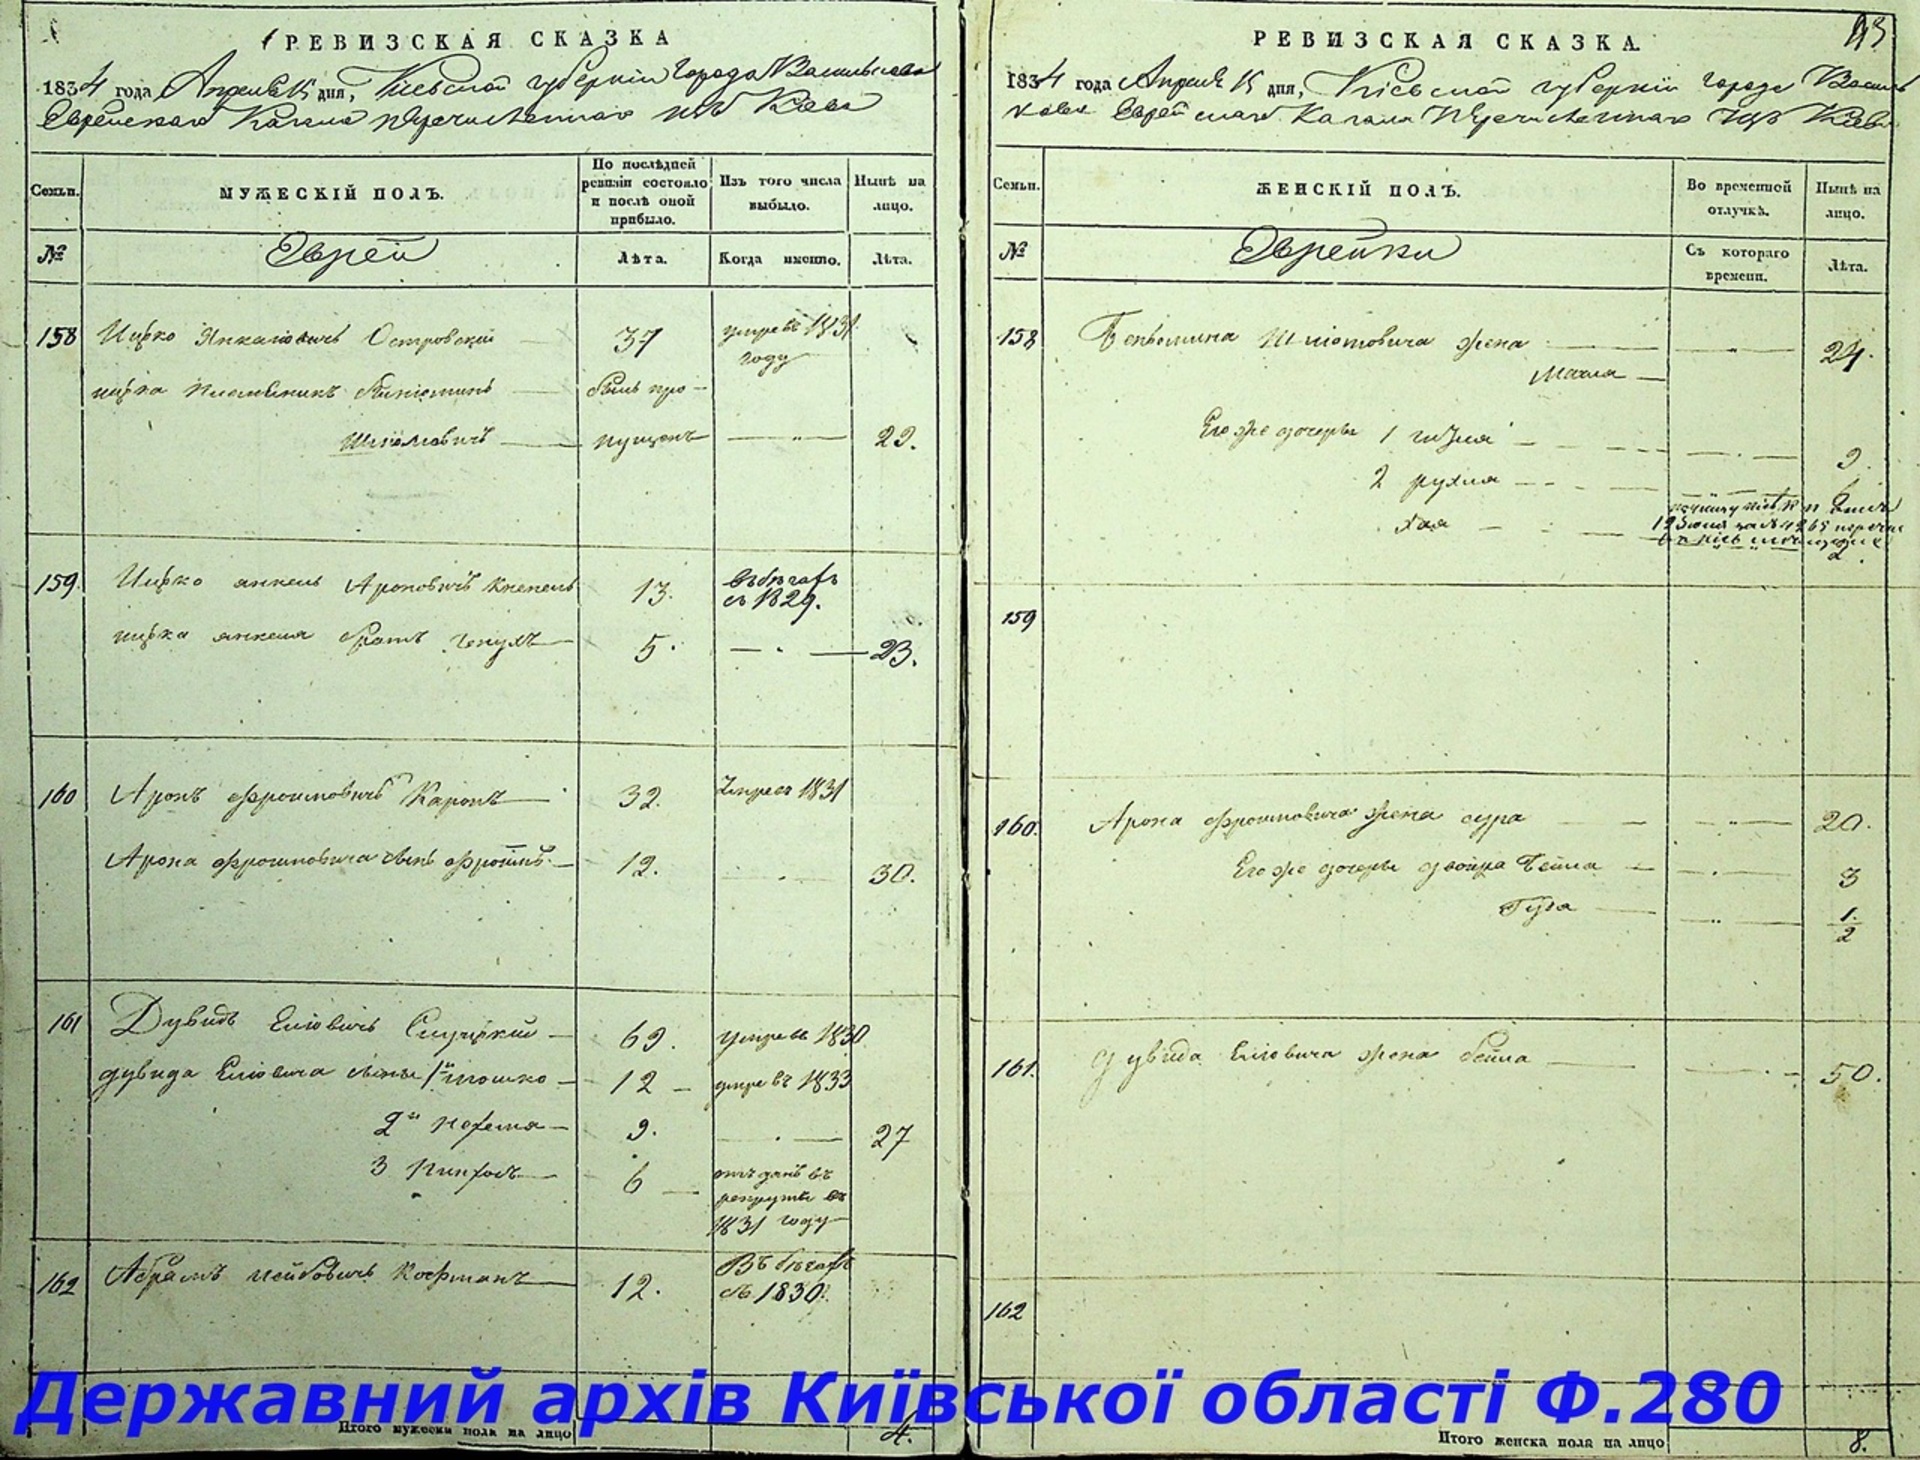 РЕВИЗСКАЯ СКАЗКА
1834 года Апреля 15 дня, Киевской губернии города Василькова
Еврейскаго Кагала перечисленнаго изъ Киева
Семьи.
МУЖЕСКІЙ ПОЛЪ.
По послѣдней ревизіи состояло и послѣ оной прибыло.
Изъ того числа выбыло.
Нынѣ на лицо.
№
Еврей
Лѣта.
Когда именно.
Лѣта.
158 Ицко Янкелевичъ Островский 37 умре въ 1831 году
ицка племянникъ Бениоминъ былъ про-
Шліомовичъ пущенъ 29.
159. Ицко янкель Ароновичъ 13. въ бѣгахъ съ 1829.
ицка янкеля братъ 5. 23.
160 Аронъ Фроимовичъ Каронъ 32. умре въ 1831
Арона Фроимовича сынъ Фроимъ 12. 30.
161 Дувидъ Еліовичъ Слуцкий 69. умре въ 1830
дувида Еліовича сыны 1й мошко 12 умре въ 1833
2й 9. 27
3 Пинхасъ 6 отъ данъ въ рекруты въ 1831 году
162 Абрамъ лейбовичъ Кофманъ 12. Въ бѣгахъ съ 1830.
Итого мужеска пола на лицо 4.
РЕВИЗСКАЯ СКАЗКА.
1834 года Апреля 15 дня, Кіевской губерніи города Василь
кова Еврейскаго Кагала Перечисленнаго изъ Киева
Семьи.
ЖЕНСКІЙ ПОЛЪ.
Во временной отлучкѣ.
Нынѣ на лицо.
№
Еврейки
Съ котораго времени.
Лѣта.
158 Беньомина Шліомовича жена 24.
Его же дочеры 1 9.
2 рухля
Хая 2.
159
160. Арона Фроимовича жена сура 20.
Его же дочеры двойра Бейла 3
1/2
161. Дувида Еліовича жена бейла 50.
162
Итого женска пола на лицо 8.
Державний архів Київської області Ф.280